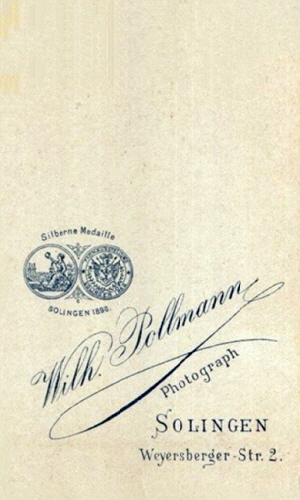 Silberne Medaille
SOLINGEN 1890.
Wilh. Pollmann
Photograph
SOLINGEN
Weyersberger-Str. 2.